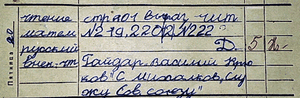 чтение стр 101 выраз. чит.
матем № 219, 220(2), № 222
русский Д. 5
внек. чт. Гайдар. Василий Крю
ков" С. Михалков "Слу
жу Сов. союзу"
Пятница